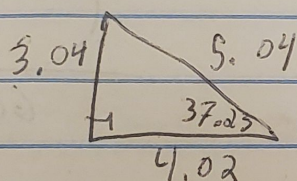 3.04
5.04
37.23
4.02